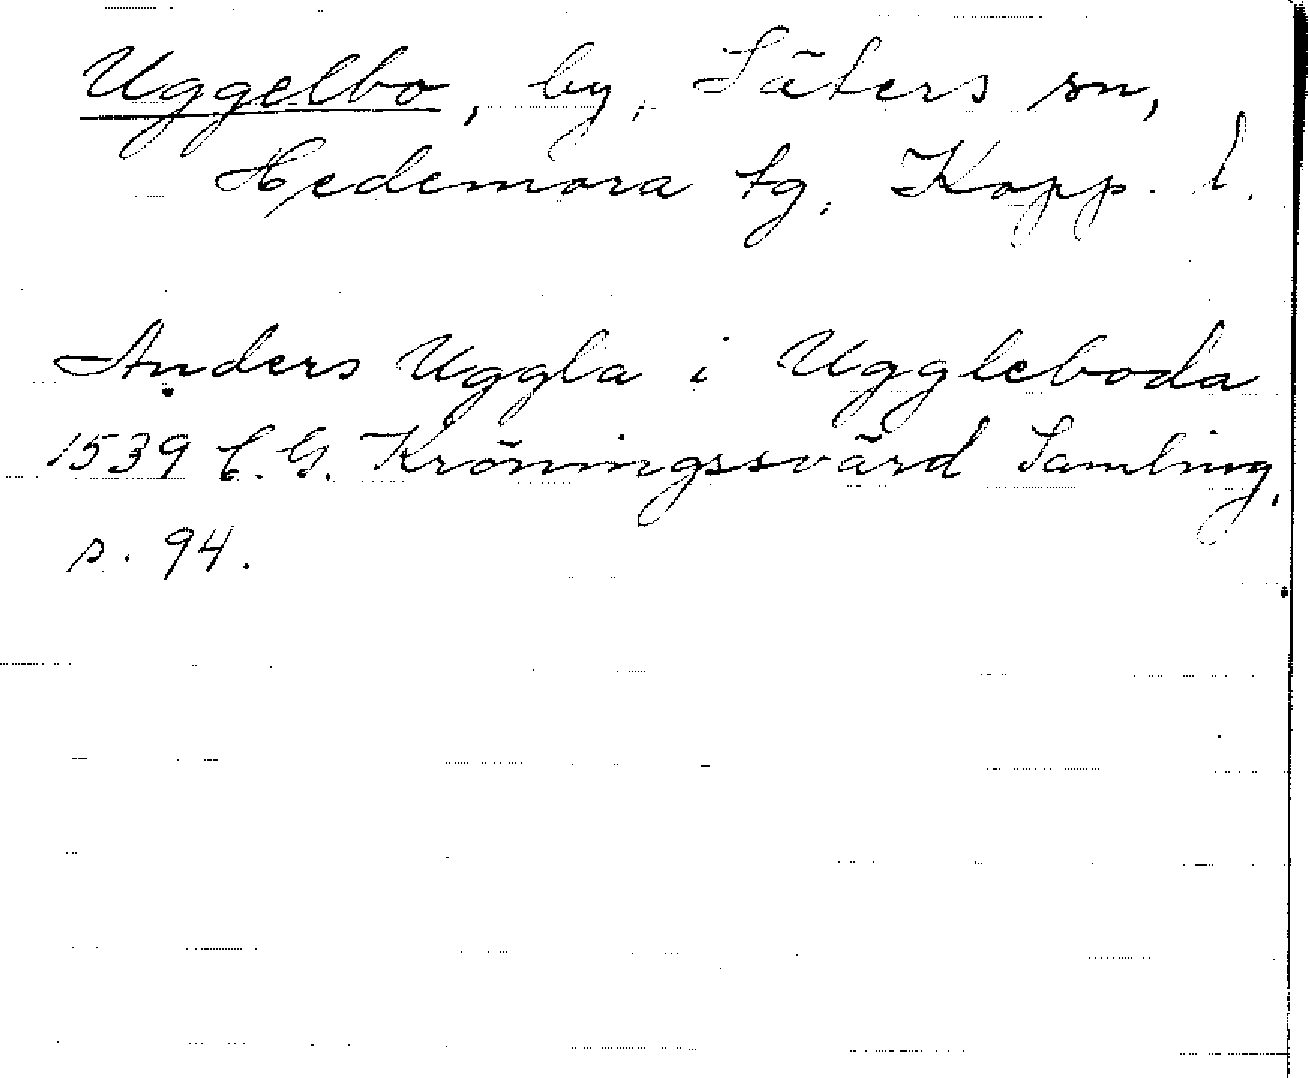 Uggelbo, by, Säters sn,
Hedemora tg, Kopp. l.
Anders Uggla i Uggleboda
1539 C. G. Kröningssvärd Samling,
s. 94.